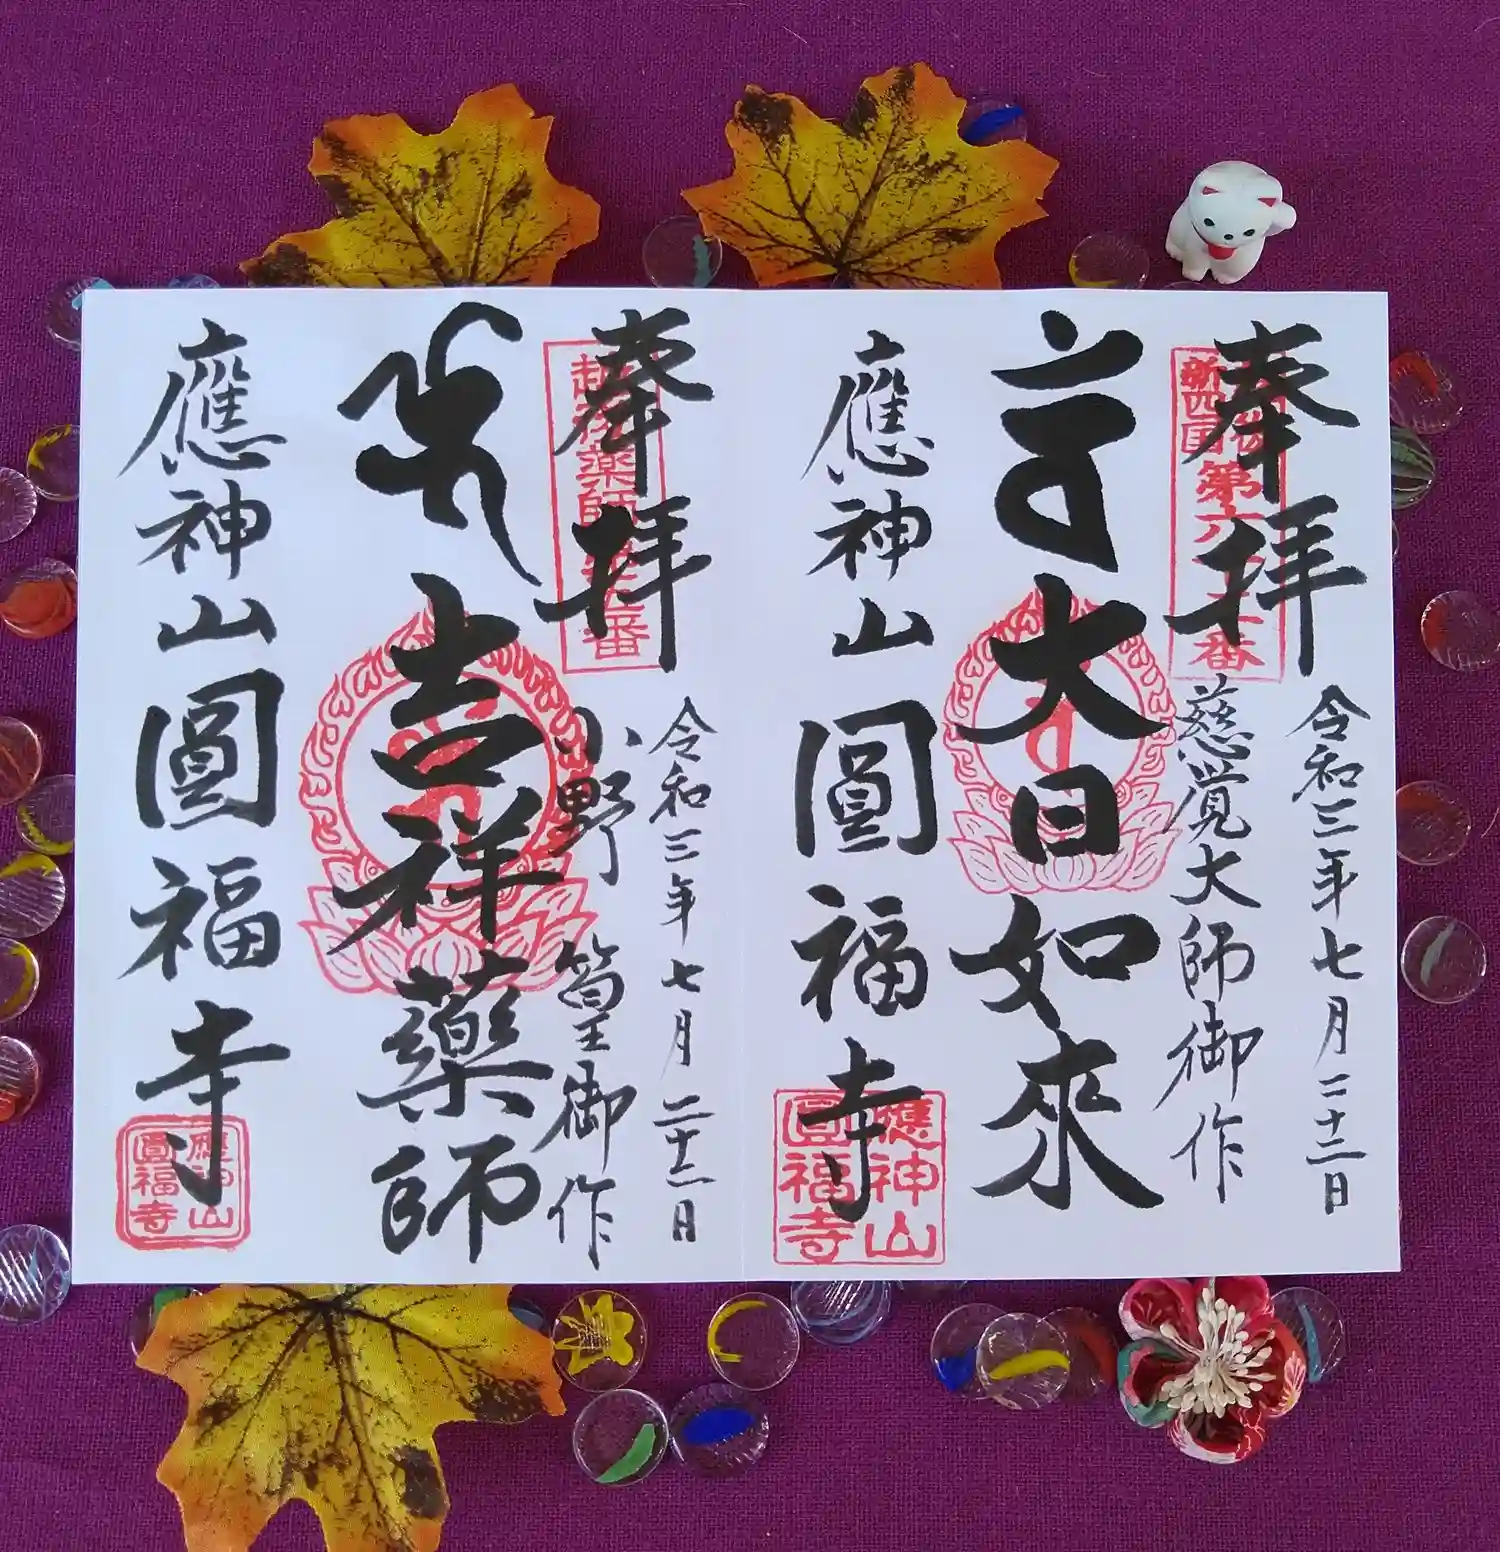 奉拝
新四国
第六
番
令和三年七月二十三日
慈覚大師御作
大日如來
應神山圓福寺
應神山
圓福寺
奉拝
薬師
番
令和三年七月二十三日
小野篁御作
吉祥藥師
應神山圓福寺
應神山
圓福寺